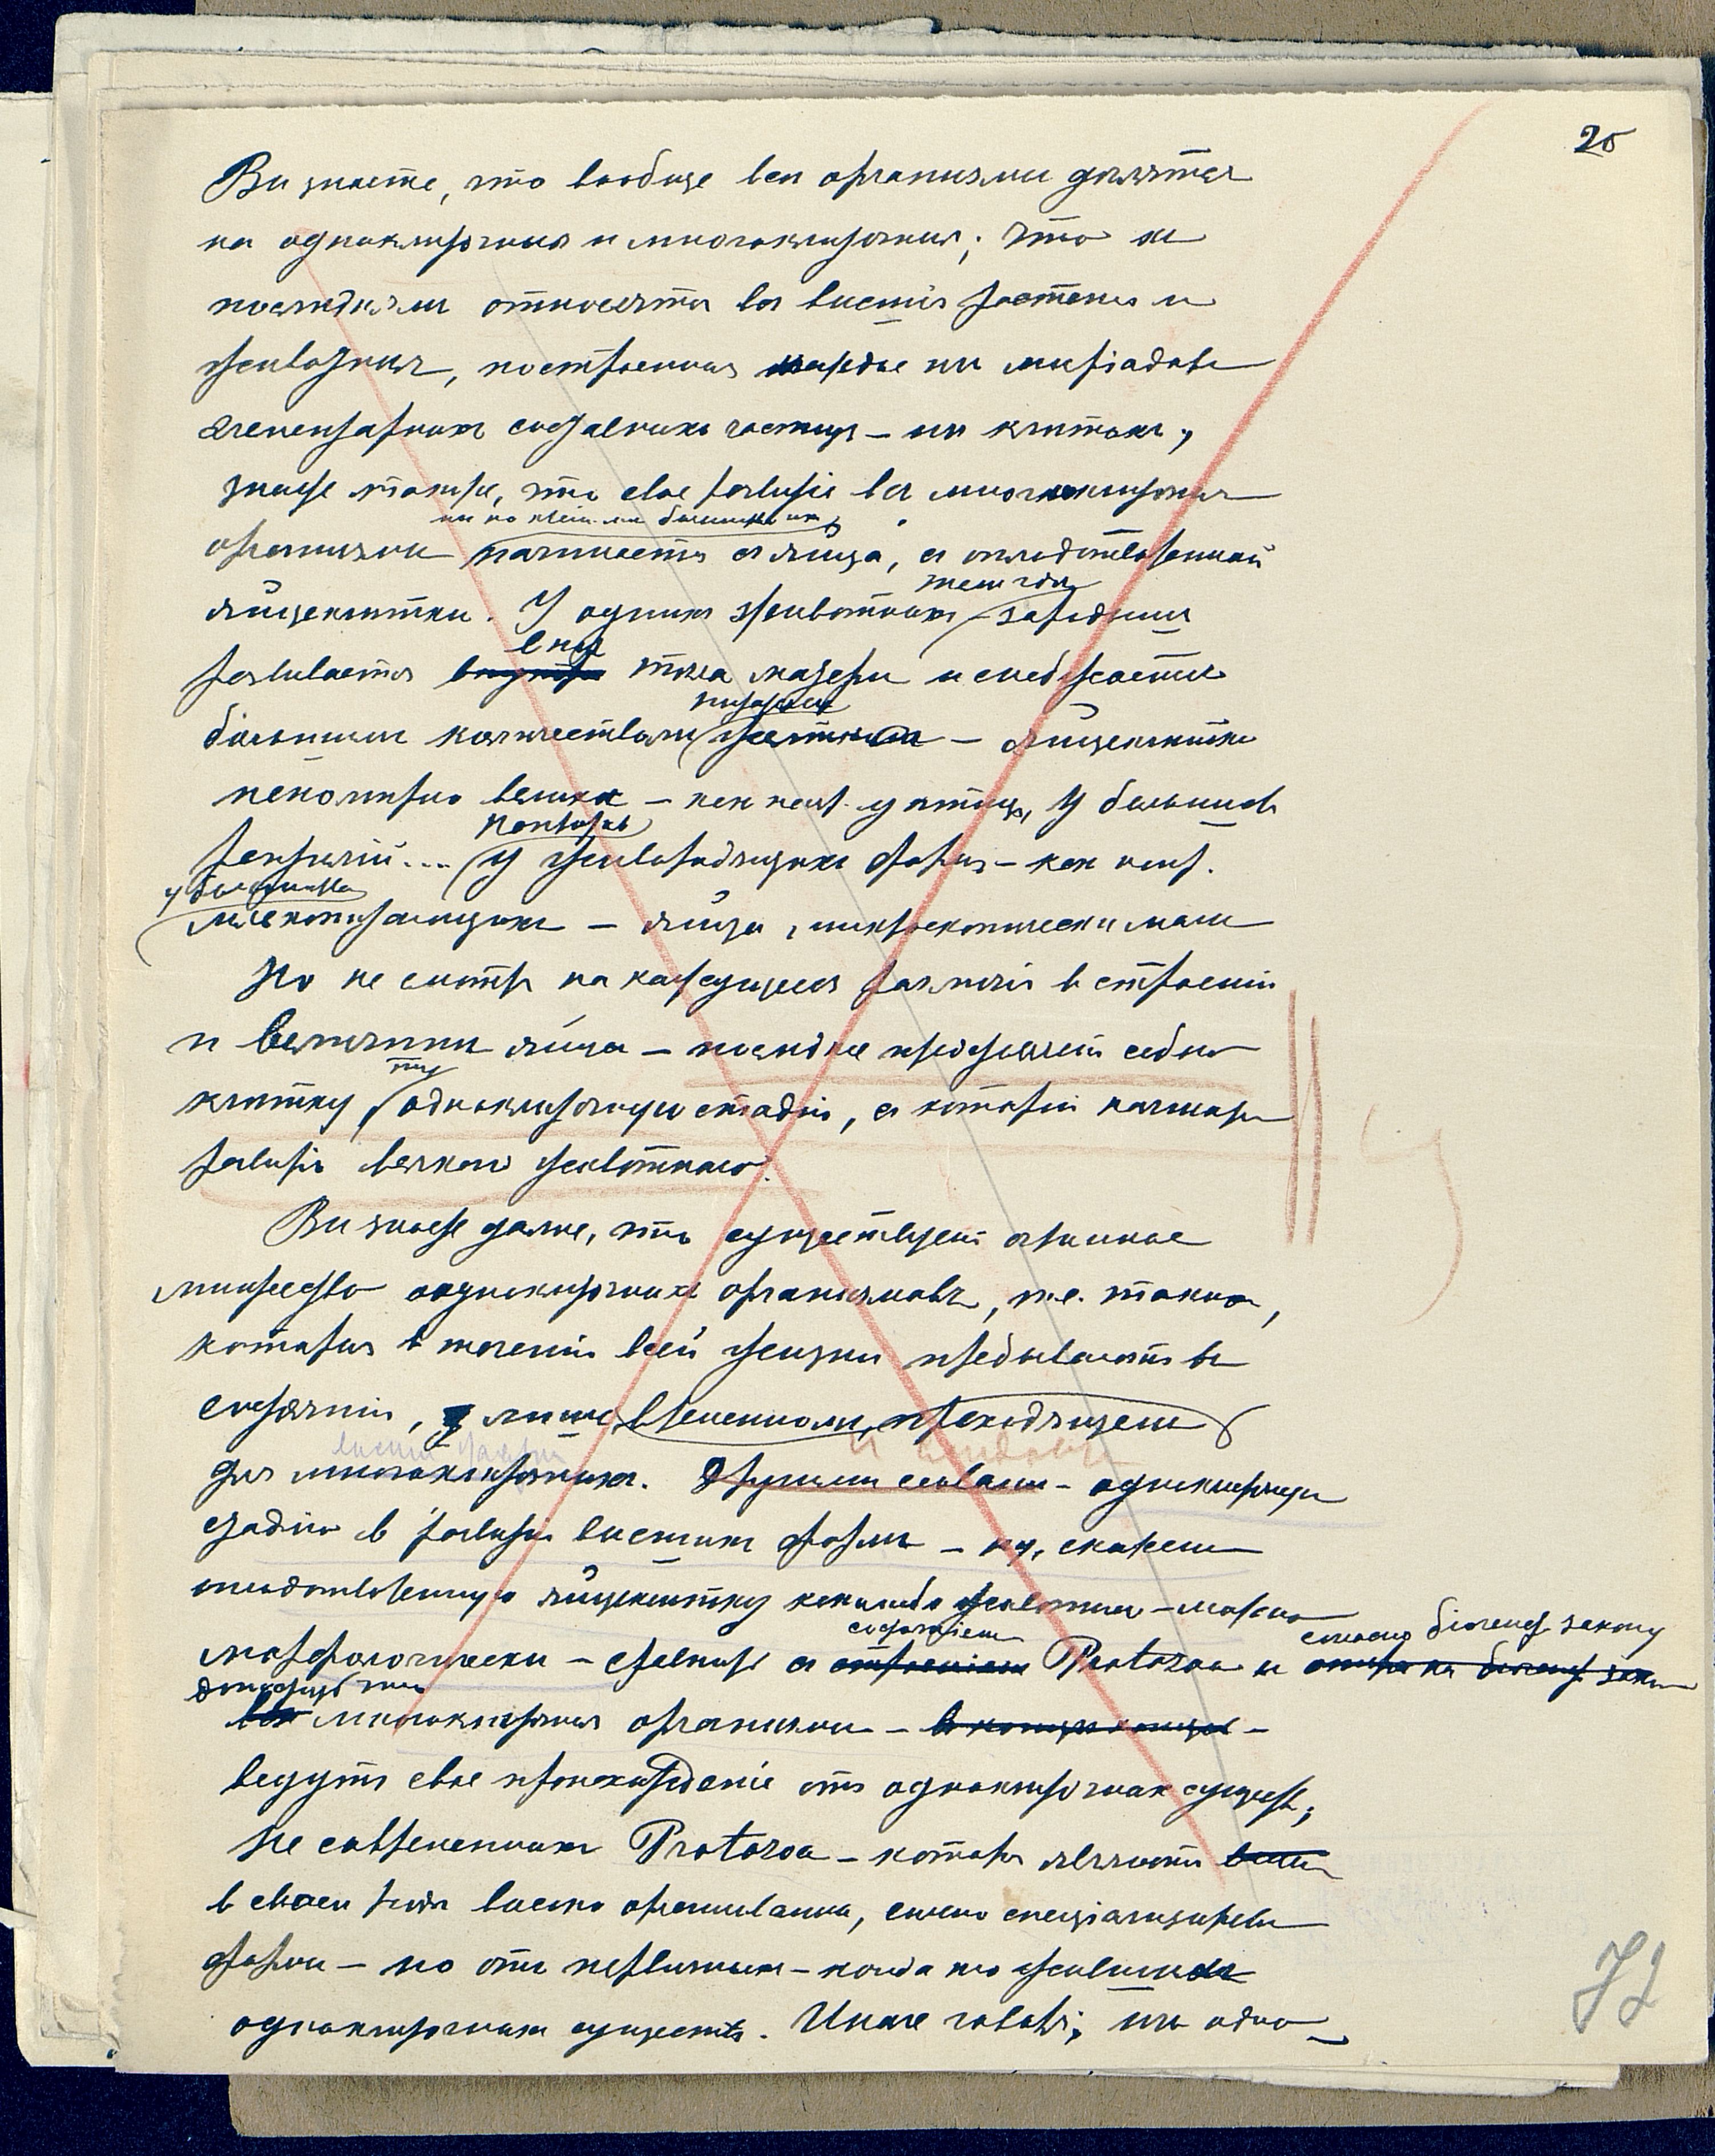 25
Вы знаете, что вообще все организмы делятся
на одноклеточныя и многоклеточныя; что к
последним относятся все высшія растенія и
животныя, построенныя из миріадов
элементарных составных частиц – из клеток;
знаете также, что свое развитіе все многоклеточныя
организмы начинают с яйца, с оплодотворенной
яйцеклетки. У одних животных зародыш
внѣ
развивается внутри тела матери и снабжается
большим количеством – яйцеклетка
непомерно велика – как напр. у птиц, у большинств
рептилій... у живородящих форм – как напр.
у большинства
млекопитающих – яйца микроскопически малы
Но не смотря на кажущееся различія в строеніи
и величине яйца – последнее представляет собою
клетку, одноклеточную стадію, с которой начинает
ту
развитіе всякое животное.
Вы знаете далее, что существует огромное
множество одноклеточных организмов, т.е. таких,
которыя в теченіи всей жизни пребывают в
состояніи, лишь временном, преходящем
для многоклеточных. Другими словами – одноклеточную
стадію в развитіи высших форм – ну, скажем
оплодотворенную яйцеклетку какого либо животнаго – можно
морфологически – сравнить с строеніем Protozoa и
состояніем
согласно біогенет. закону
многоклеточныя организмы – в конце концов –
ведут свое происхожденіе от одноклеточных существ;
не современных Protozoa – которыя являются
в своем роде высоко организованныя, сильно спеціализиров.
формы – но от первичных – когда то живших
одноклеточных существ. Иначе говоря; одно-
72